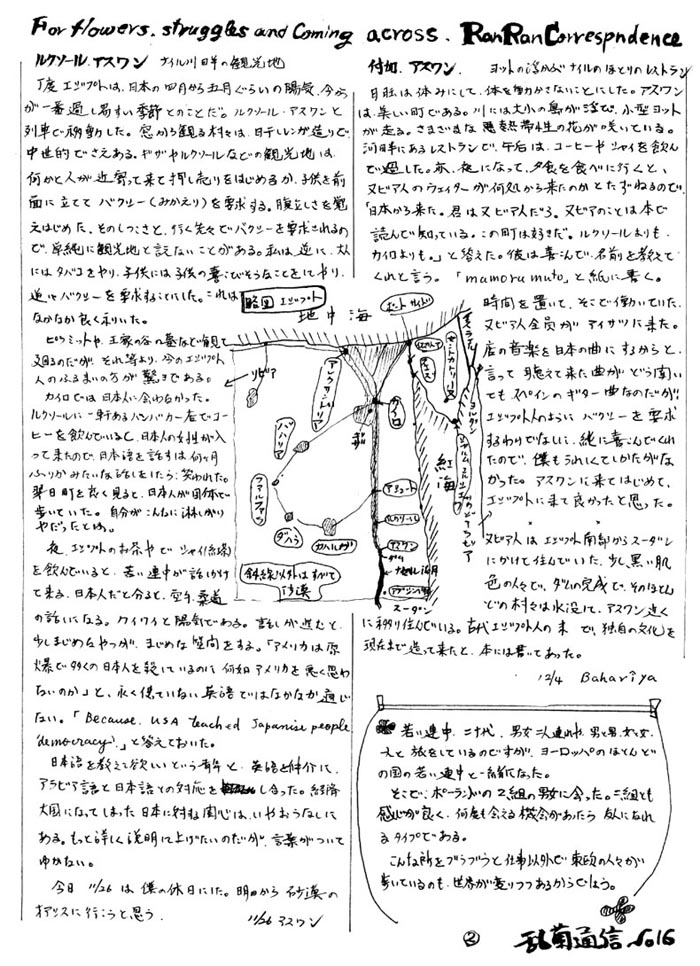 For flowers. struggles and Coming across. RanRanCorrespndence
ルクソール.アスワン ナイル川日半の観光地
丁度エジプトは、日本の四月から五月ぐらいの陽気、今から
が一番過し易すい季節とのことだ。ルクソール・アスワンと
列車で移動した。窓から観る村々は、日干レンガ造りで
中世的でさえある。ギザやルクソールなどの観光地は、
何かと人が近寄って来て押し売りをはじめるか、子供を前
面に立てて バクシー(みかえり)を要求する。腹立しさを覚
えはじめた、そのしつこさと、行く先々でバクシーを要求されるの
で、単純に観光地と言えないことがある。私は、逆に、大人
にはタバコをやり、子供には子供の喜こびそうなことをしてやり、
逆にバクシーを要求することにした。これは
なかなか良く利いた。
ピラミットや、王家の谷の墓など観て
廻るのだが、それ等より、今のエジプト
人のふるまいの方が驚きである。
カイロでは日本人に会わなかった。
ルクソールに一軒あるハンバーカー店でコー
ヒーを飲んでいると、日本人の女性が入
って来たので、日本語を話すは何ヶ月
ふりかみたいな話しをしたら、笑われた。
翌日町を良く見ると、日本人が団体で
歩いていた。自分がこんなに淋しがり
やだったとは。
夜、エジプトのお茶やで シャイ(紅茶)
を飲んでいると、若い連中が話しかけ
て来る。日本人だと分ると、空手、柔道
の話しになる。ワイワイと陽気である。話しが進むと、
少しまじめなやつが、まじめな質問をする。「アメリカは原
爆で多くの日本人を殺しているのに何如アメリカを悪く思わ
ないのか」と、永く使っていない英語ではなかなか通じ
ない。「Because. USA teached Japanise people
'democracy'.」と答えておいた。
日本語を教えて欲しいという青年と、英語を仲介に、
アラビア語と日本語との対応をし合った。経済
大国になってしまった日本に対する関心は、いやおうなしに
ある。もっと詳しく説明して上げたいのだが、言葉がついて
ゆかない。
今日 11/26 は 僕の休日にした。明日から 砂漠の
オアシスに行こうと思う。 11/26 アスワン
付加.アスワン. ヨットの浮かぶナイルのほとりのレストラン
日程は休みにして、体を動かさないことにした。アスワン
は、美しい町である。川には大小の島が浮び、小型ヨット
が走る。さまざまな亜熱帯性の花が咲いている。
河日半にあるレストランで、午後は、コーヒーやシャイを飲ん
で過した。亦、夜になって、夕食を食べに行くと、
ヌビア人のウェイターが何処から来たのかとたずねるので、
「日本から来た。君はヌビア人だろ。ヌビアのことは本で
読んで知っている。この町は好きだ。ルクソールよりも、
カイロよりも。」と答えた。彼は喜こんで、名前を教えて
くれと言う。「mamoru muto」と紙に書く。
時間を置いて、そこで働いていた、
ヌビア人全員がアイサツに来た。
店の音楽を日本の曲にするからと、
言って聴えて来た曲がどう聞い
てもスペインのギター曲なのだが、
エジプト人のようにバクシーを要求
するわけでなしに、純に喜こんでくれ
たので、僕もうれしくてしかたがな
かった。アスワンに来てはじめて、
エジプトに来て良かったと思った。
× ×
ヌビア人は エジプト南部からスーダン
にかけて住んでいた、少し黒い肌
色の人々で、ダムの完成で、そのほとん
どの村々は水没して、アスワン近く
に移り住んでいる。古代エジプト人の末 で、独自の文化を
現在まで造って来たと、本には書いてあった。
12/4 Bahariya
略図 エジプト
地中海
ポートサイド
イスラエル
リビア
アレクサンドリア
カイロ
ギザ
スエズ
セントカトリーヌ
ヨルダン
サウジアラビア
紅海
バハリア
ファルファラ
ダハラ
カハルガ
アシュート
ルクソール
アスワン
ダム
ナセル湖
アブシンベル
スーダン
斜線以外はすべて
砂漠
若い連中、二十代、男女二人連れや、男と男、女と女、
一人と旅をしているのですが、ヨーロッパのほとんど
の国の若い連中と一緒になった。
そこで、ポーランドの2組の男女に会った。二組とも
感じが良く、何度も会える機会があったら 友人になれ
るタイプである。
こんな所をブラブラと仕事以外で東欧の人々が
歩いているのも、世界が変りつつあるからでしょう。
② 乱菊通信 No16